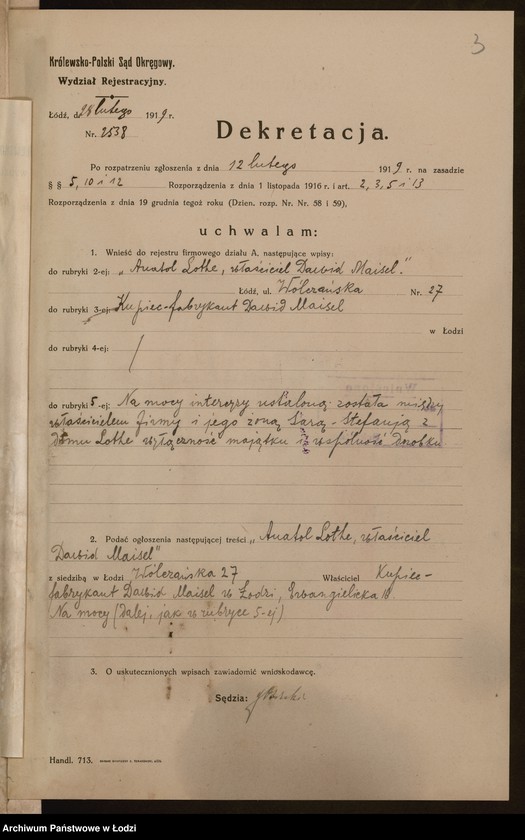 3
Królewsko-Polski Sąd Okręgowy.
Wydział Rejestracyjny.
Łódź, d. 28 lutego 1919 r.
Nr. 2538
Dekretacja.
Po rozpatrzeniu zgłoszenia z dnia 12 lutego 1919 r. na zasadzie
§ § 5, 10 i 12 Rozporządzenia z dnia 1 listopada 1916 r. i art. 2, 3, 5 i 13
Rozporządzenia z dnia 19 grudnia tegoż roku (Dzien. rozp. Nr. Nr. 58 i 59),
uchwalam:
1. Wnieść do rejestru firmowego działu A. następujące wpisy:
do rubryki 2-ej: „Anatol Lothe, właściciel Dawid Maisel."
Łódź, ul. Wólczańska Nr. 27
do rubryki 3-ej: Kupiec-fabrykant Dawid Maisel
w Łodzi
do rubryki 4-ej:
do rubryki 5-ej: Na mocy intercyzy ustaloną została między
właścicielem firmy i jego żoną Sarą-Stefanją z
domu Lothe wyłączność majątku i wspólność dorobku
2. Podać ogłoszenia następującej treści „Anatol Lothe, właściciel
Dawid Maisel"
z siedzibą w Łodzi Wólczańska 27 Właściciel Kupiec-
fabrykant Dawid Maisel w Łodzi, Ewangielicka
Na mocy (dalej, jak w rubryce 5-ej)
3. O uskutecznionych wpisach zawiadomić wnioskodawcę.
Sędzia:
Handl. 713.
Archiwum Państwowe w Łodzi